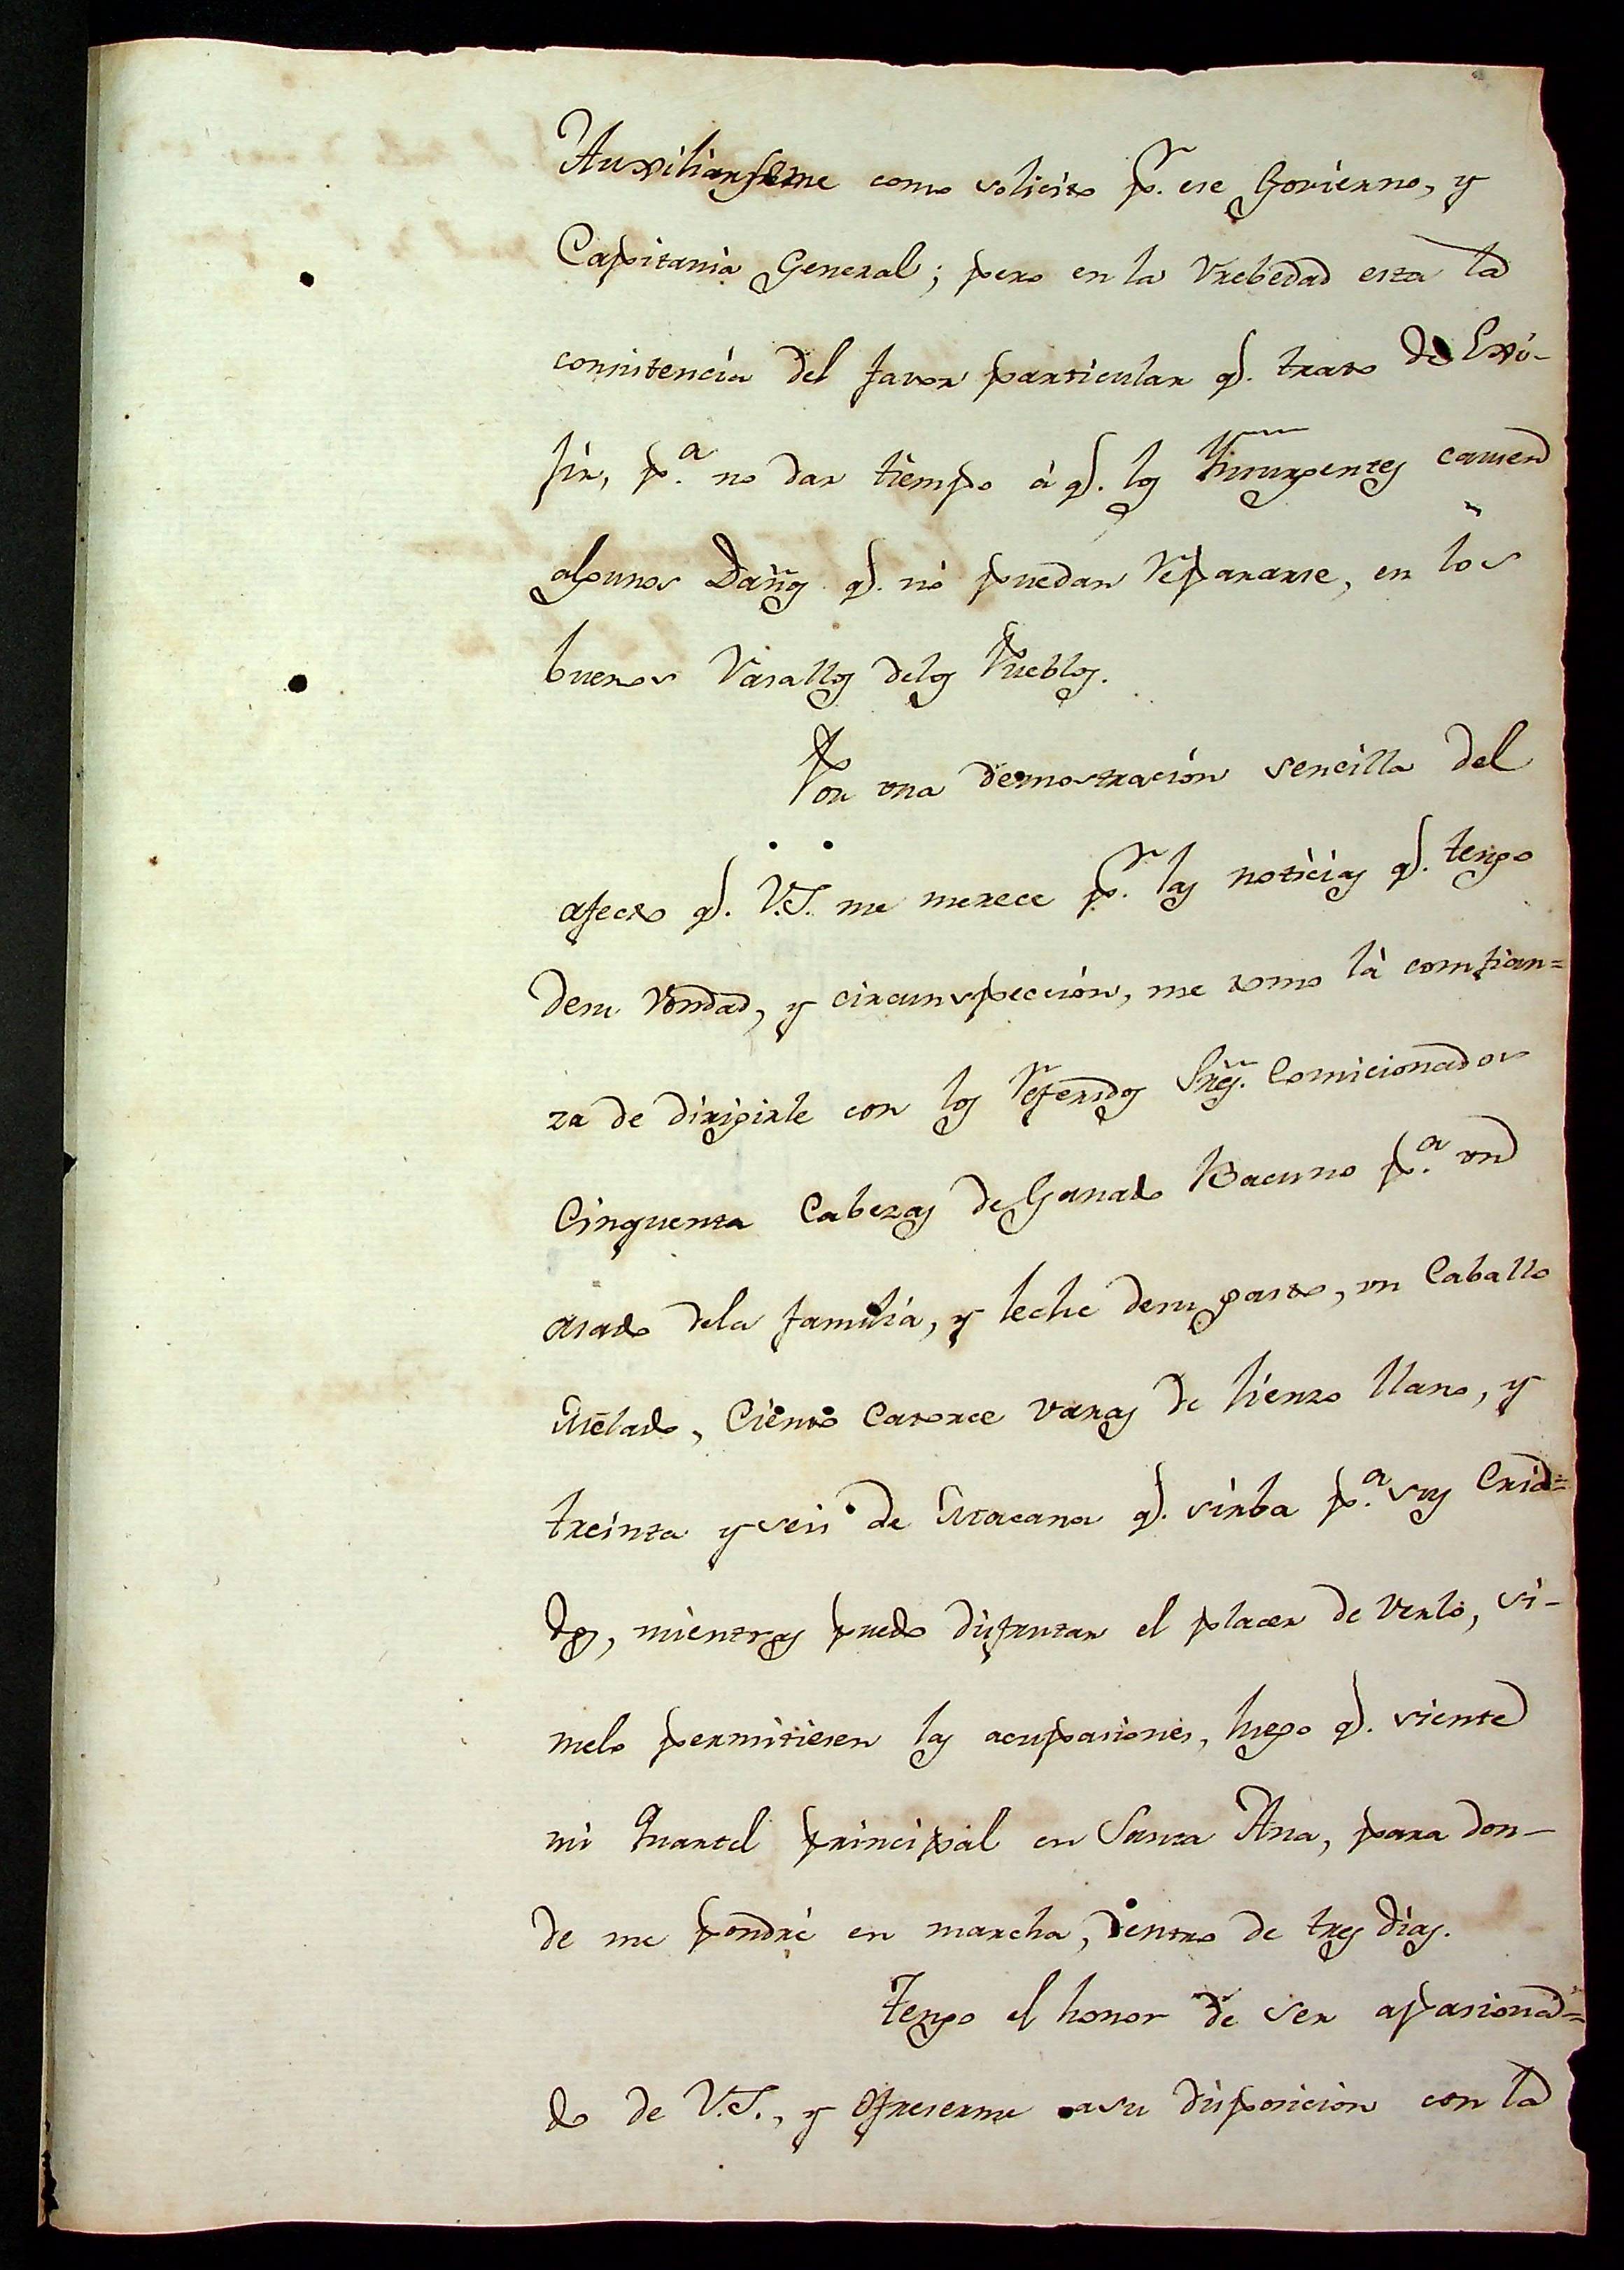 Auxiliarseme como solicito p.r ese Govierno, y
Capitania General; pero en la Vrebedad esta la
consistencia del favor particular q.e trato de Exi-
jir, p.a no dar tiempo à q.e los Ynsurgentes causen
algunos Daños q.e nó puedan Repararse, en los
buenos Vasallos delos Pueblos.
Por una demostracion sencilla del
afecto q.e V.S. me merece p.r las noticias q.e tengo
desu Vondad, y circunspeccion, me tomo là comfian=
za de dirigirle con los Referidos Sres. Comicionados
Cinquenta Cabezas de Ganado Bacuno p.a un
asado dela familia, y leche desu gasto, un Caballo
Melado, Ciento Catorce varas de lienzo llano, y
treinta y seis de Macana q.e sirba p.a sus Cria=
dos, mientras puedo disfrutar el placer de verlo, si-
melo permitiesen las acupasiones, luego q.e siente
mi Quartel principal en Santa Ana, para don-
de me pondré en marcha, dentro de tres dias.
Tengo el honor de ser apasiona=
do de V.S., y Ofreserme asu disposicion con la